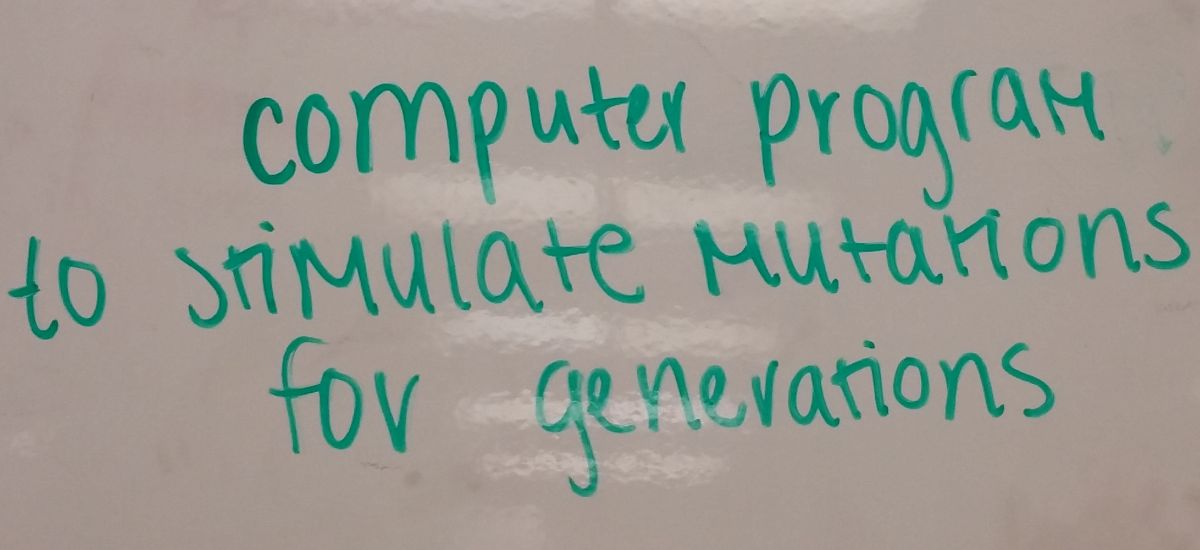 computer program
to stimulate mutations
for generations